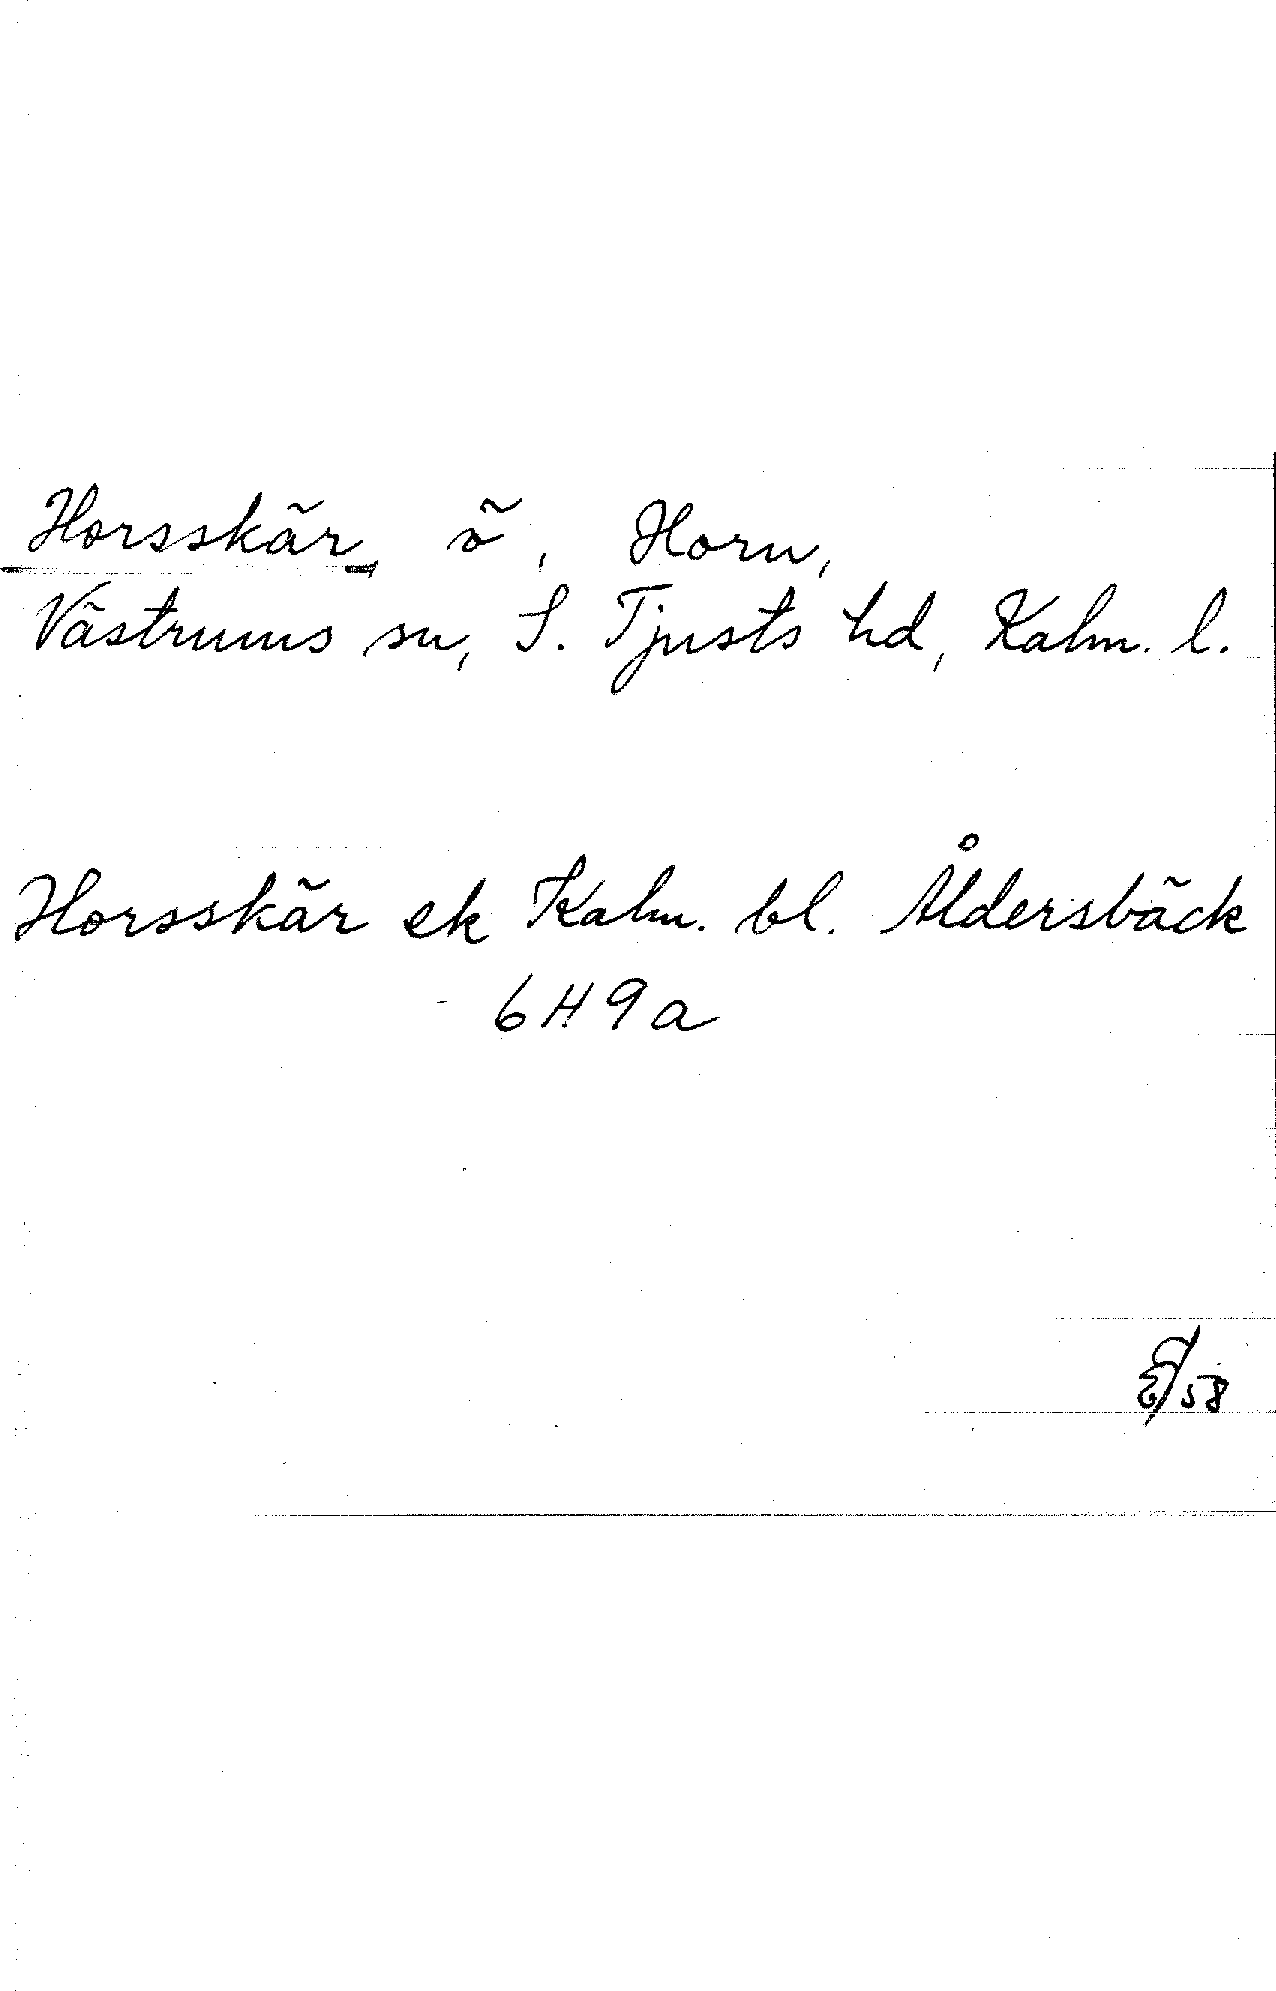 Horsskär, ö, Horn,
Västrums sn, S. Tjusts hd, Kalm. l.
Horsskär ek Kalm. bl. Åldersbäck
6H9a
/58